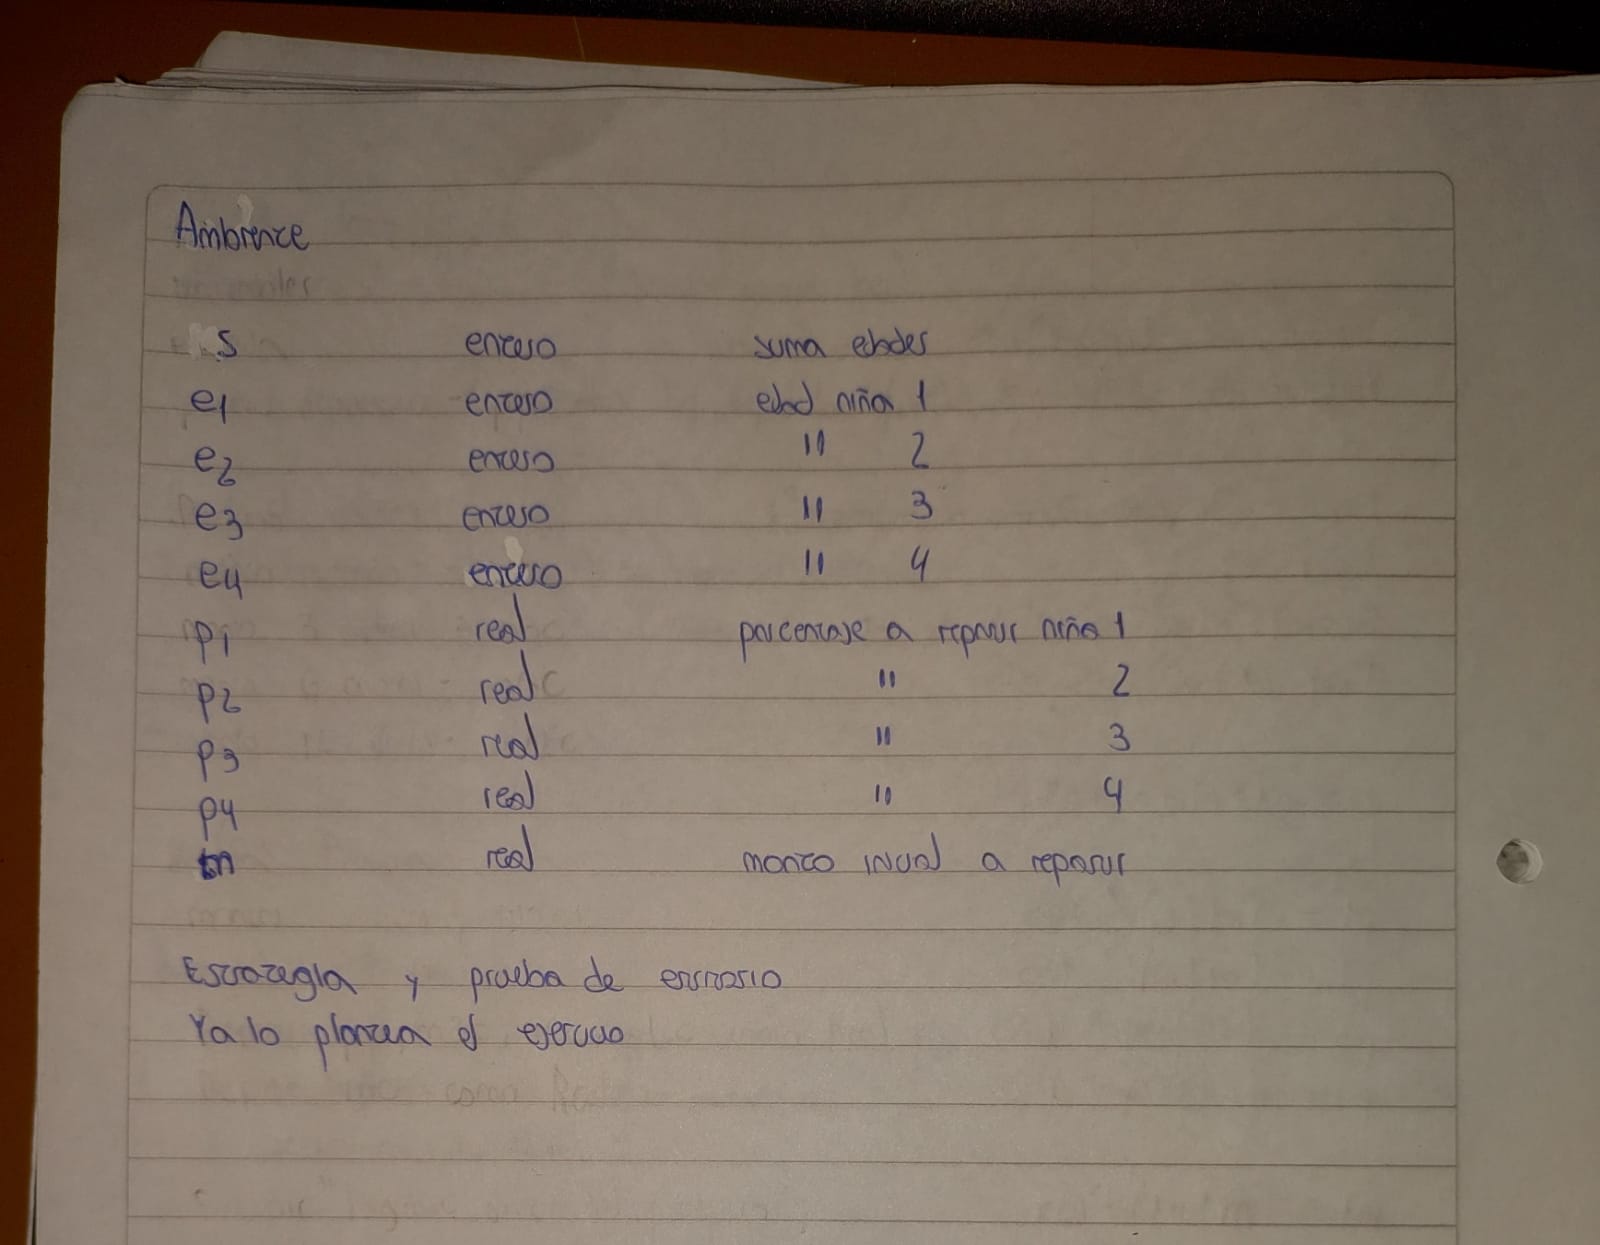 Ambiente
s entero suma edades
e1 entero edad niña 1
e2 entero " 2
e3 entero " 3
e4 entero " 4
p1 real porcentaje a repartir niña 1
p2 real " 2
p3 real " 3
p4 real " 4
m real monto inicial a repartir
Estrategia y prueba de escritorio
Ya lo plantea el ejercicio